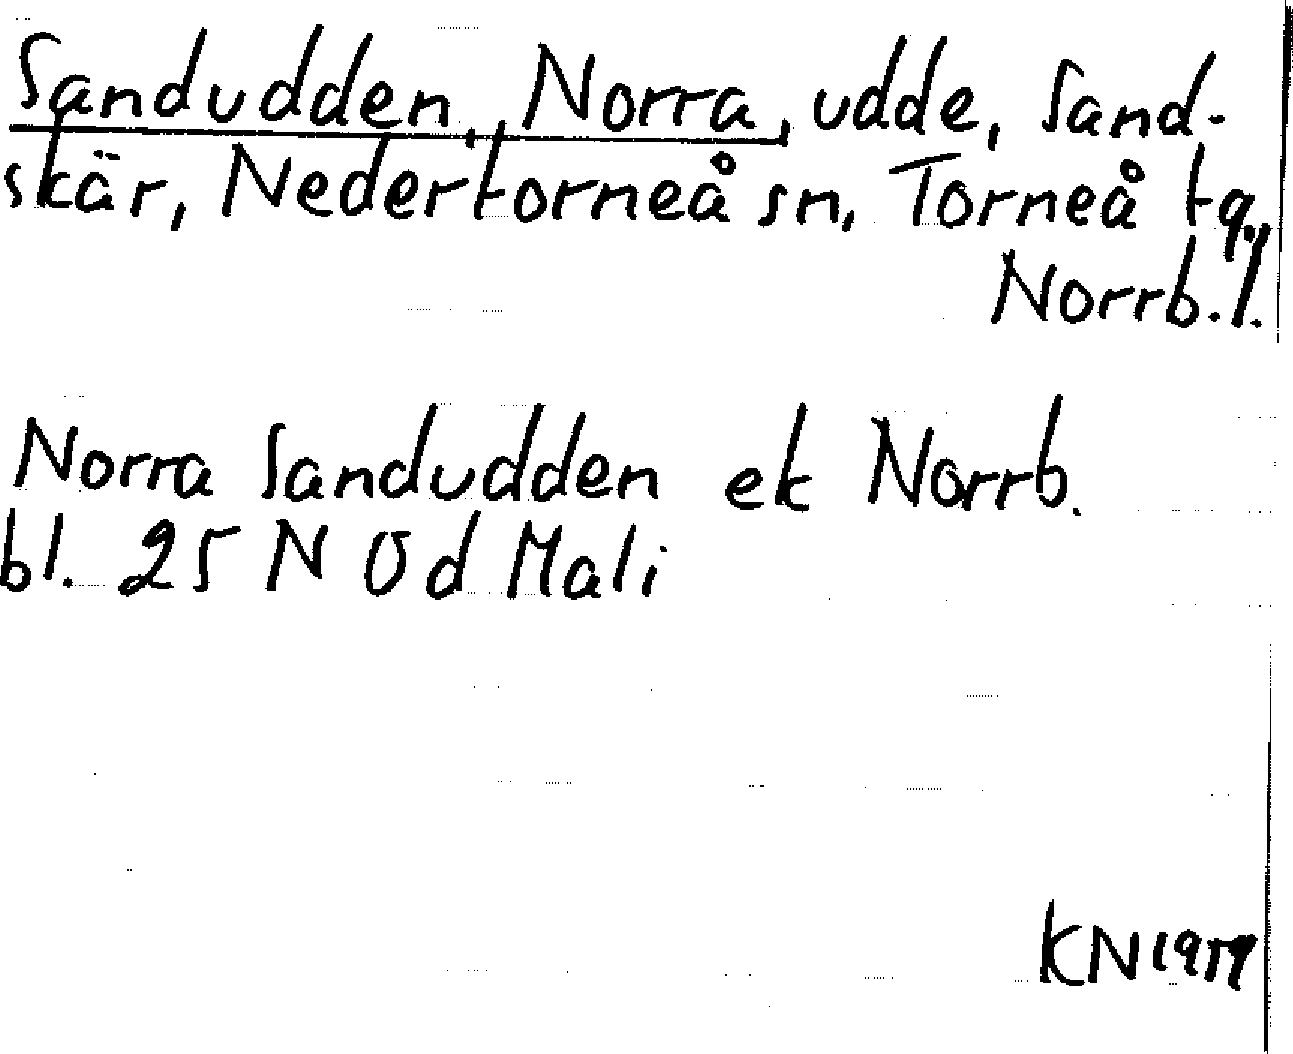 Sandudden, Norra, udde, Sand-
skär, Nedertorneå sn, Torneå tg,
Norrb. l.
Norra Sandudden ek Norrb.
bl. 25 N Ö d Mali
KN